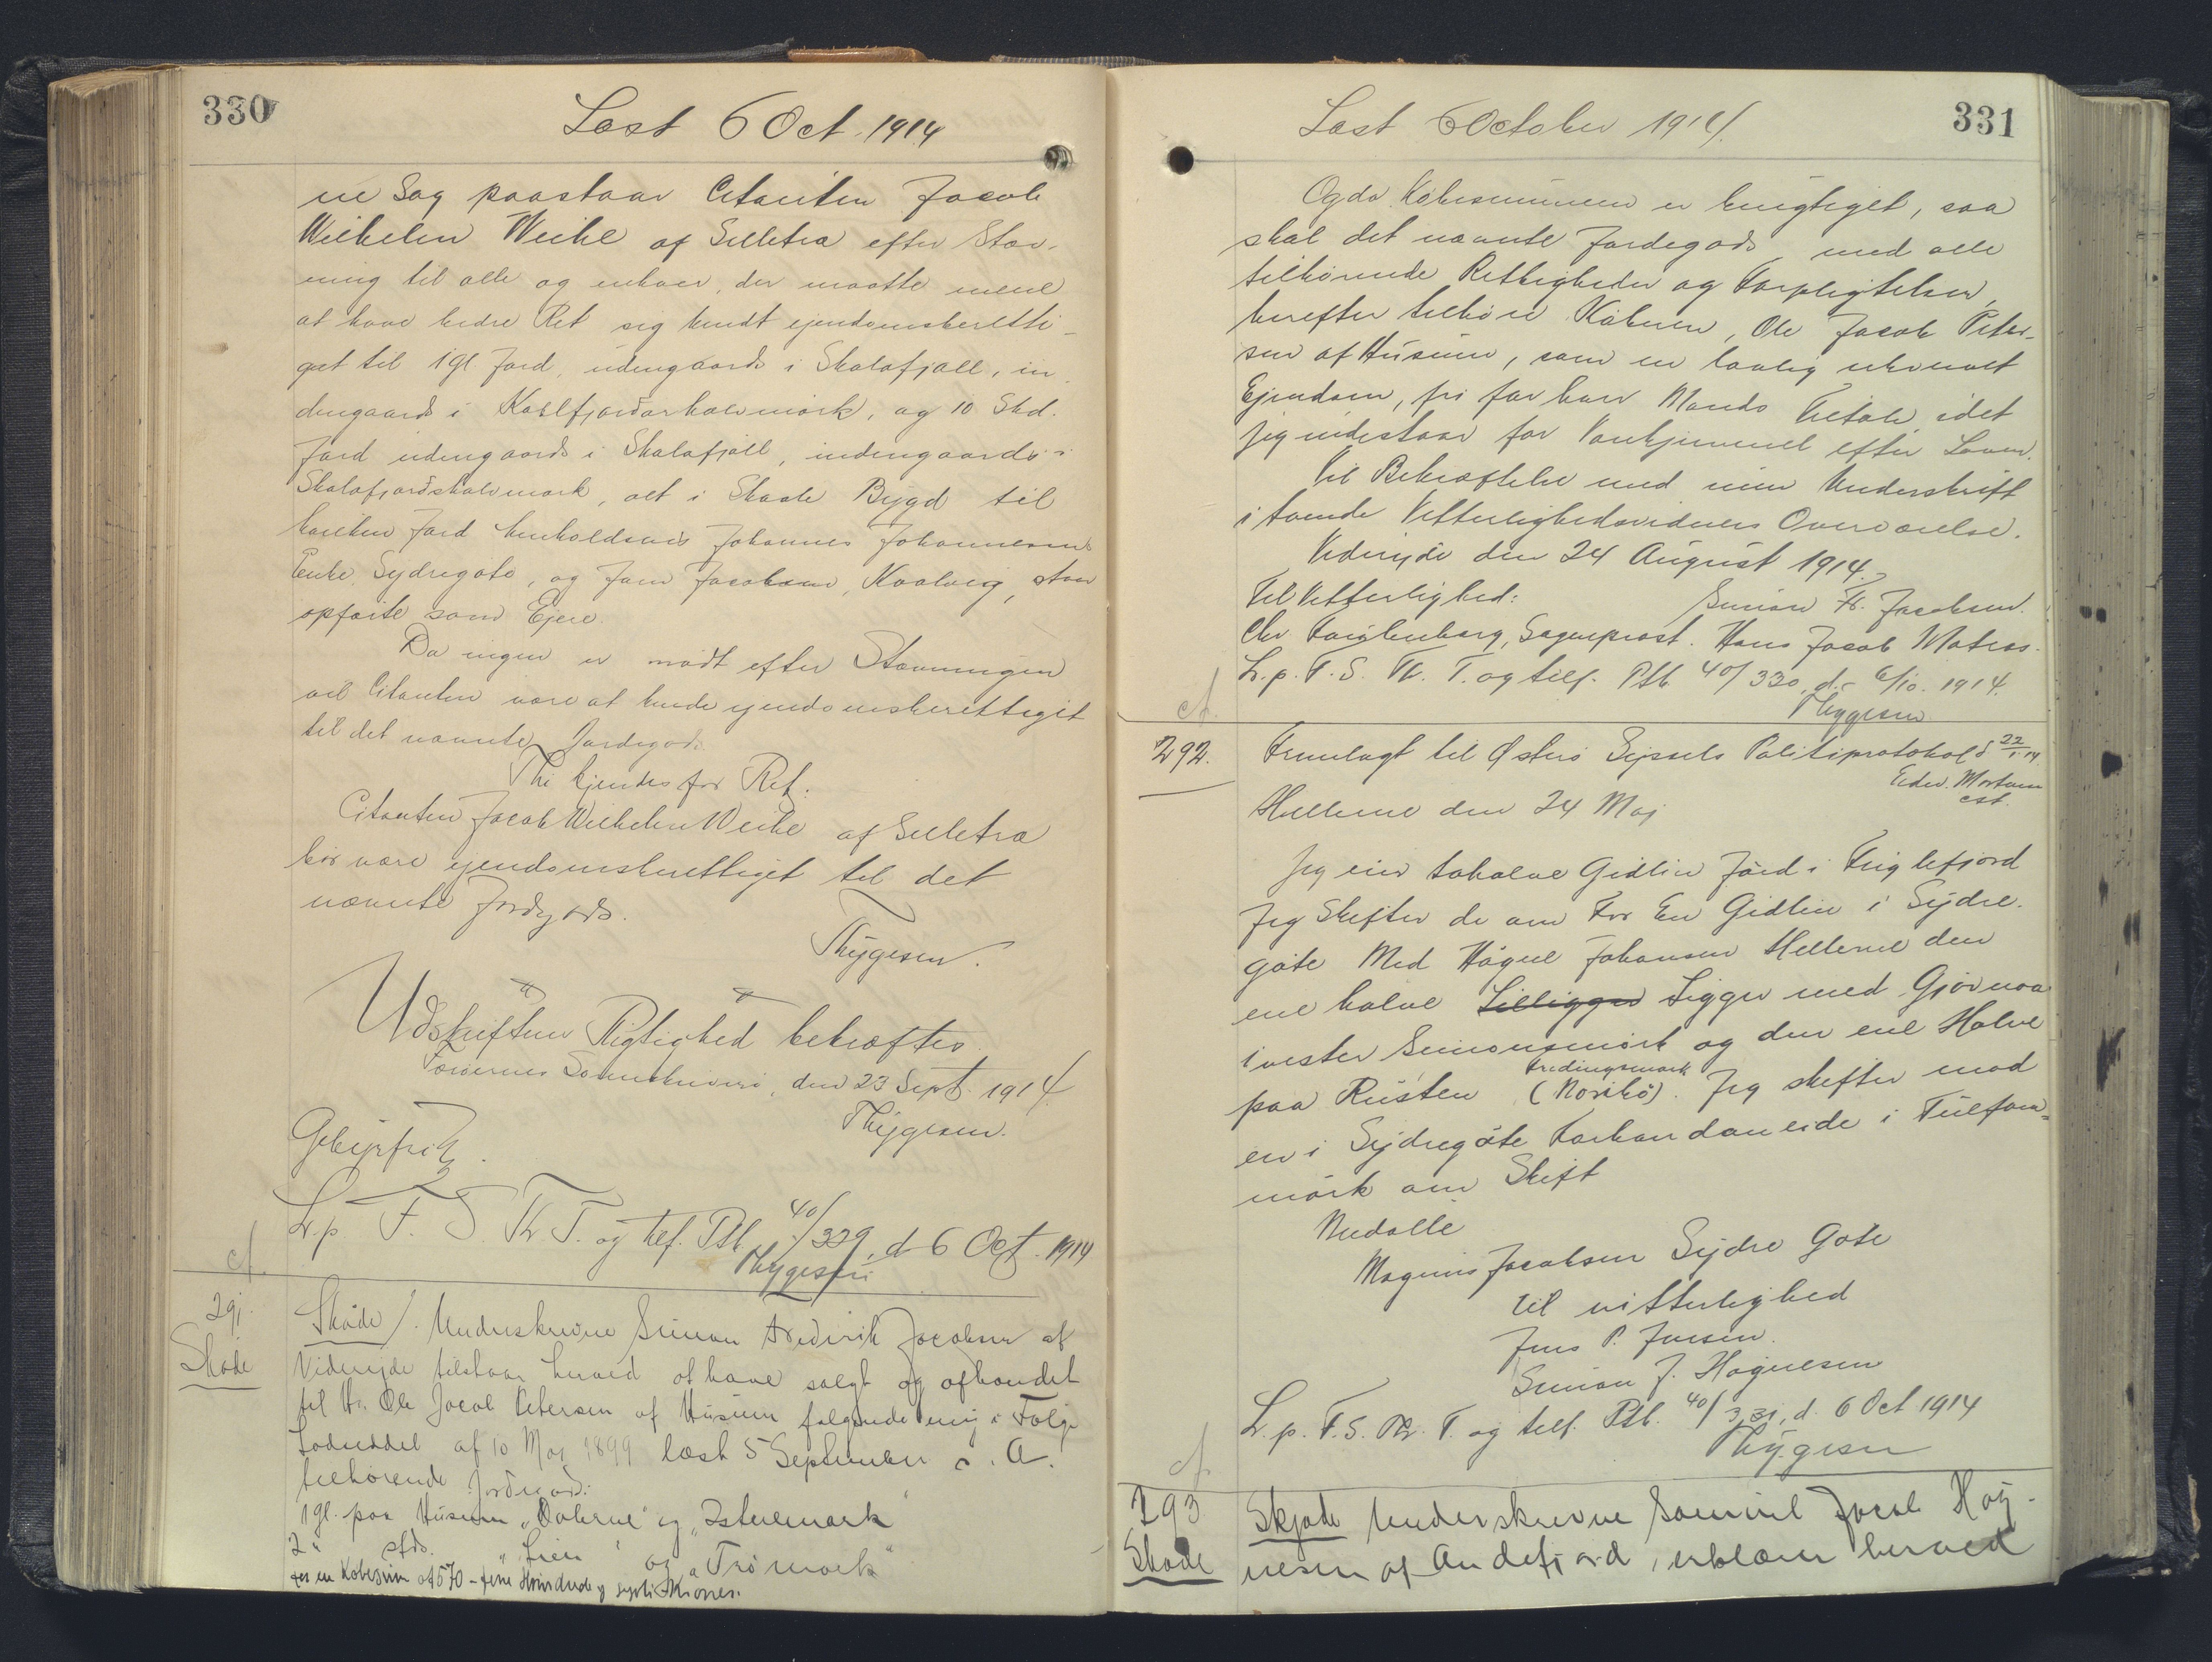 330
Læst 6 Oct. 1914
ne Sag paastaar Citanten Jacob
Wilhelm Weihe af Selletra efter Stæv-
ning til alle og enhver, der maatte mene
at have bedre Ret sig kendt ejendomsberetti-
get til 1 gl Jord, udengaards i Skalafjall, in
dengaards i Kaslfjordarhalvmørk, og 10 Skd.
Jord udengaards i Skalafjall, indengaards i
Skalafjordshalvmørk, alt i Skaale Bygd til
hvilken Jord henholdsvis Johannes Johannesens
Enke, Sydregøte, og Joen Jacobsen, Kvalvig, staar
opførte som Ejere.
Da ingen er mødt efter Stævningen
vil Citanten være at kende ejendomsberettiget
til det nævnte Jordegods.
Thi kjendes for Ret:
Citanten Jacob Wilhelm Weihe af Selletra
bør være ejendomsberettiget til det
nævnte Jordegods.
Thygesen.
Udskriftens Rigtighed bekræftes
Færøernes Sorenskriveri, den 23 Sept. 1914.
Thygesen.
Gebyrfrit
L. p. F. S. Th. T. og tilf. Ptb. 40/329, d. 6 Oct. 1914
Thygesen
cf.
291.
Skøde
Skøde/. Underskrevne Simon Frederik Jacobsen af
Viderejde tilstaar herved at have solgt og afhændet
til Hr. Ole Jacob Petersen af Húsum følgende mig i Følge
Lodseddel af 10 Maj 1899 læst 5 September s. A.
tilhørende Jordegods:
1 gl. paa Húsum "Dalerne" og "Isturmark"
2 " stds. "Lien" og "Trømark"
for en Købesum af 570 - fem Hundrede og syvti Kroner.
331
Læst 6 October 1914.
Og da Købesummen er berigtiget, saa
skal det nævnte Jordegods med alle
tilhørende Rettigheder og Forpligtelser,
herefter tilhøre Køberen, Ole Jacob Peter-
sen af Húsum, som en lovlig erhvervet
Ejendom, fri for hver Mands Tiltale, idet
jeg indestaar for Vanhjemmel efter Loven.
Til Bekræftelse med min Underskrift
i tvende Vitterlighedsvidners Overværelse.
Viderejde den 24 August 1914.
Til Vitterlighed: Simon Fr. Jacobsen.
Chr Færgenborg, Sognepræst. Hans Jacob Matras.
L. p. F. S. Th. T. og tilf. Ptb. 40/330, d. 6/10. 1914.
Thygesen
cf.
292.
Fremlagt til Østerø Syssels Politiprotokol d 22/1 14
Edw. Mortensen
cst.
Hellerne den 24 Maj
Jeg eier tohalve Gidlin Jord i Fuglefjord
Jeg Skifter de om For En Gidlin i Sydre-
gøte Med Høgne Johansen Hellerne den
ene halve Lilligger Ligger med Gjøvnaa
ivester Simonsmørk og den ene Halve
Fredingsmørk
paa Rústen (Norihø). Jeg skifter mod
en i Sydregøte Forhan dan eide i Tulfom=
mørk om Skift
Nudolle
Magnus Jacobsen Sydre Gøte
til vitterlighed
Jens P. Juesen.
Simon J. Høgnesen
L. p. F. S. Th. T. og tilf. Ptb. 40/331, d. 6 Oct 1914
Thygesen
cf.
293
Skøde
Skjøde Underskrevne Samuel Jacob Høg-
nesen af Andefjord, erklærer herved